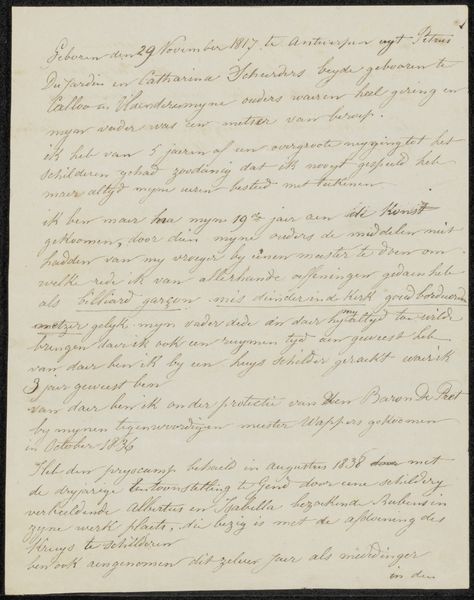 Geboren den 29 November 1817 te Antwerpen uyt Petrus
Du Jardin en Catharina Scheerders beyde gebooren te
Calloo in Vlaenderen myne ouders waeren heel gering en
myn vader was een metser van beroep.
ik heb van 5 jaren af een overgroote nyging tot het
schilderen gehad zoodanig dat ik nooyt gespeeld heb
maer altyd myne uren besteed met teekenen
ik ben maer na myn 19de jaer aen de Konst
gekoomen, door dien myne ouders de middelen niet
hadden van my vroeger by eenen meester te doen om
welke rede ik van allerhande oeffeningen gedaen heb
als billiard garçon mis diender in d kerk goud borduren
metzer gelyk myn vader dede en daer hy my altyd toe wilde
bringen daer ik ook een ruymen tyd aen geweest heb
van daer ben ik by een huys schilder geraekt waer ik
3 jaer geweest ben
van daer ben ik onder protectie van den Baron De Pret
by mynen tegenwoordigen meester Wappers gekoomen
in October 1836
Heb den pryscamp behaeld in augustus 1838 met
de dryjarige tentoonstelling te Gend door eene schildery
verbeeldende Albertus en Isabella bezoekende Rubens in
zyne werk plaets, die bezig is met de afdoening des
Kruys te schilderen
ben ook aengenomen dit zelve jaer als
in den